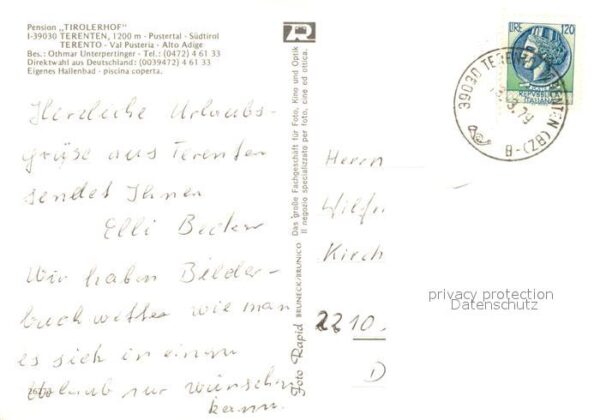 Pension „TIROLERHOF"
I-39030 TERENTEN, 1200 m - Pustertal - Südtirol
TERENTO - Val Pusteria - Alto Adige
Bes.: Othmar Unterpertinger - Tel.: (0472) 4 61 33
Direktwahl aus Deutschland: (0039472) 4 61 33
Eigenes Hallenbad - piscina coperta.
Herzliche Urlaubs-
grüße aus Terenten
sendet Ihnen
Elli Becker
Wir haben Bilder-
buchwetter wie man
es sich in einem
Urlaub nur wünschen
kann.
Foto Rapid BRUNECK/BRUNICO
Das große Fachgeschäft für Foto, Kino und Optik
Il negozio specializzato per foto, cine ed ottica.
R
LIRE 120
39030 TERENTO-TERENTEN (BZ)-B
8.79
Herrn
Wilfr
Kirch
2210
D
privacy protection
Datenschutz